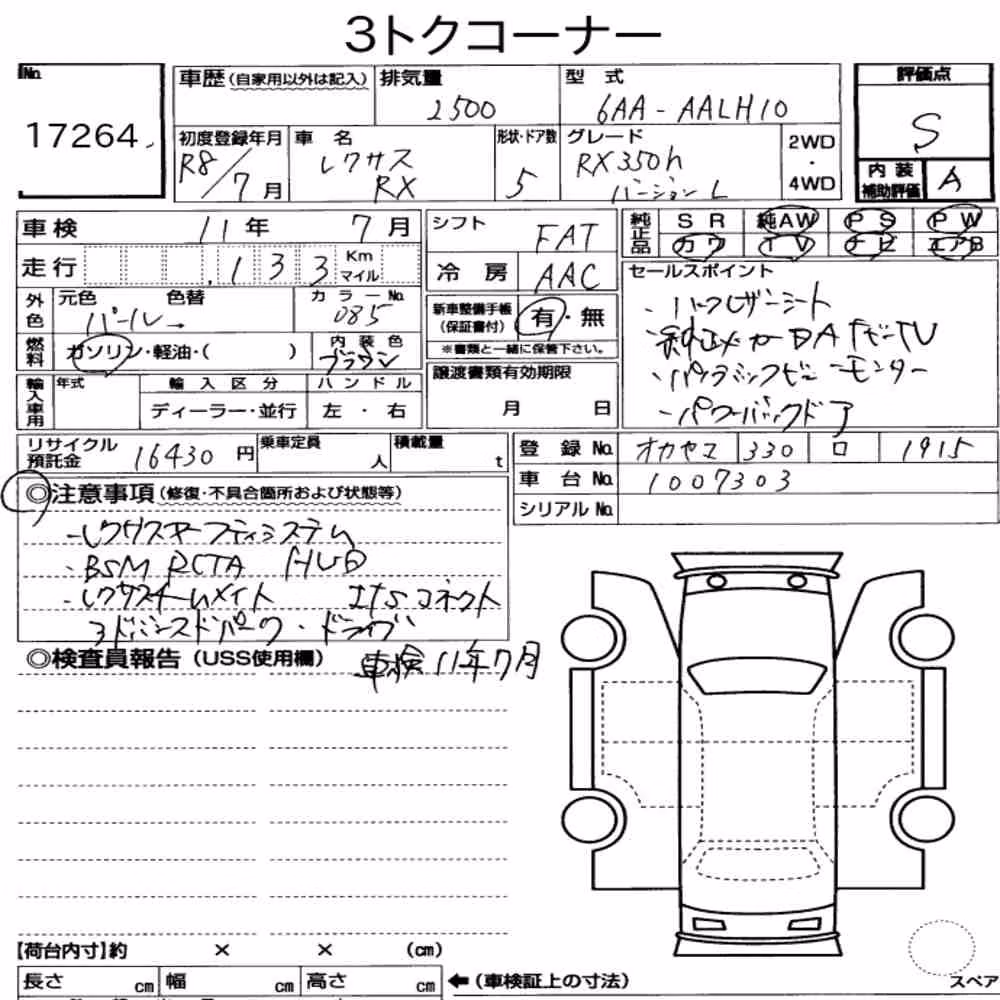 3トクコーナー
No.
17264
車歴 (自家用以外は記入)
排気量
2500
型 式
6AA-AALH10
評価点
S
初度登録年月
R8/7月
車 名
レクサス
RX
形状・ドア数
5
グレード
RX350h
バージョンL
2WD
・
4WD
内 装
補助評価
A
車検 11年 7月
シフト
FAT
純正品
SR 純AW PS PW
カワ TV ナビ エアB
走行 133 Km マイル
冷 房 AAC
セールスポイント
・ハーフレザーシート
・純正メーカーDAナビTV
・パノラミックビューモニター
・パワーバックドア
外色 元色 色替
パール→
カラーNo.
085
新車整備手帳
(保証書付)
有・無
※書類と一緒に保管下さい。
燃料 ガソリン・軽油・( )
内装色
ブラウン
譲渡書類有効期限
月 日
輸入車用 年式 輸入区分 ハンドル
ディーラー・並行 左・右
リサイクル
預託金
16430円
乗車定員
人
積載量
t
登 録 No. オカヤマ 330 ロ 1915
車 台 No. 1007303
シリアル No.
◎注意事項 (修復・不具合箇所および状態等)
・レクサスセーフティシステム
・BSM RCTA HUD
・レクサスチームメイト ITSコネクト
3ドライブ
◎検査員報告 (USS使用欄) 車検11年7月
【荷台内寸】約 × × (cm)
長さ cm 幅 cm 高さ cm
←(車検証上の寸法)
スペア